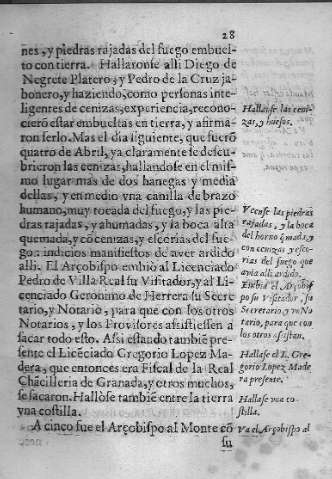 28
ñes, y piedras rajadas del fuego embuel-
to con tierra. Hallaronse alli Diego de
Negrete Platero, y Pedro de la Cruz ja-
bonero, y haziendo, como personas inte-
ligentes de cenizas, experiencia, recono-
cierō estar embueltas en tierra, y afirma-
ron serlo. Mas el dia siguiente, que fuerō
quatro de Abril, ya claramente se descu-
brieron las cenizas, hallandose en el mis-
mo lugar mas de dos hanegas y media
dellas, y en medio vna canilla de brazo
humano, muy tocada del fuego, y las pie-
dras rajadas, y ahumadas, y la boca alta
quemada, y cō cenizas, y escorias del fue-
go: indicios manifiestos de aver ardido
alli. El Arçobispo embiò al Licenciado
Pedro de Villa Real su Visitador, y al Li-
cenciado Geronimo de Herrera su Secre
tario, y Notario, para que con los otros
Notarios, y los Provisores assistiessen a
sacar todo esto. Assi estando tambiē pre-
sente el Licēciado Gregorio Lopez Ma-
dera, que entonces era Fiscal de la Real
Chācilleria de Granada, y otros muchos,
se sacaron. Hallòse tambiē entre la tierra
vna costilla.
A cinco fue el Arçobispo al Monte cō
su
Hallanse las ceni-
zas, y huesos.
Veense las piedras
rajadas, y la boca
del horno q̄mada, y
con cenizas y esco-
rias del fuego que
avia alli ardido.
Embia el Arçobis
po su Visitador, su
Secretario y no No
tario, para que con
los otros assistan.
Hallase el L. Gre-
gorio Lopez Made
ra presente.
Hallase vna co-
stilla.
Va el Arçobispo al